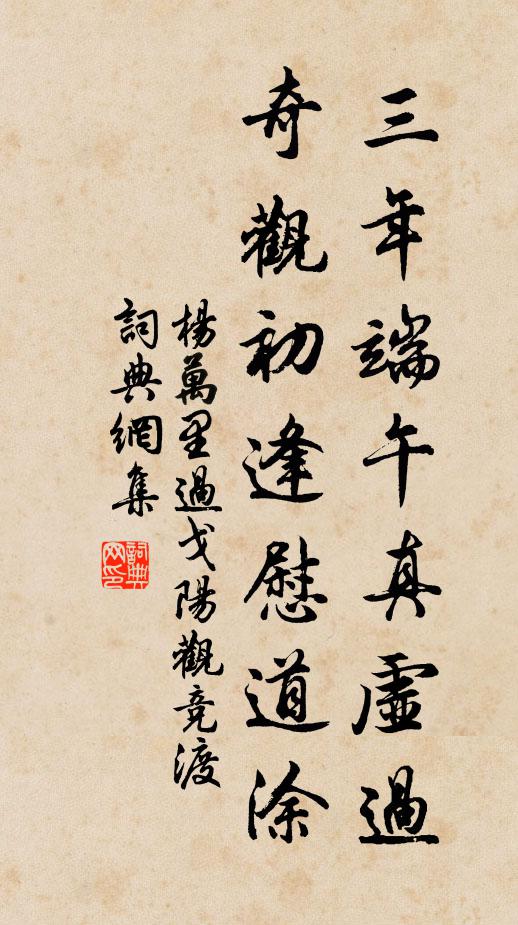 三年端午真虛過
奇觀初逢慰道涂
楊萬里過弋陽觀競渡
詞典網集
詞典网印